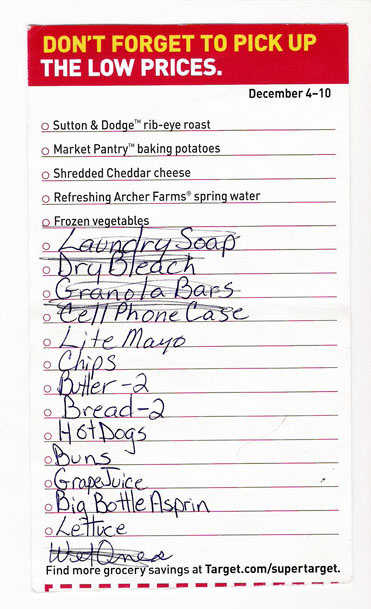 DON'T FORGET TO PICK UP
THE LOW PRICES.
December 4–10
Sutton & Dodge™ rib-eye roast
Market Pantry™ baking potatoes
Shredded Cheddar cheese
Refreshing Archer Farms® spring water
Frozen vegetables
Laundry Soap
Dry Bleach
Granola Bars
Cell Phone Case
Lite Mayo
Chips
Butter -2
Bread -2
Hot Dogs
Buns
Grape Juice
Big Bottle Asprin
Lettuce
Wet Ones
Find more grocery savings at Target.com/supertarget.